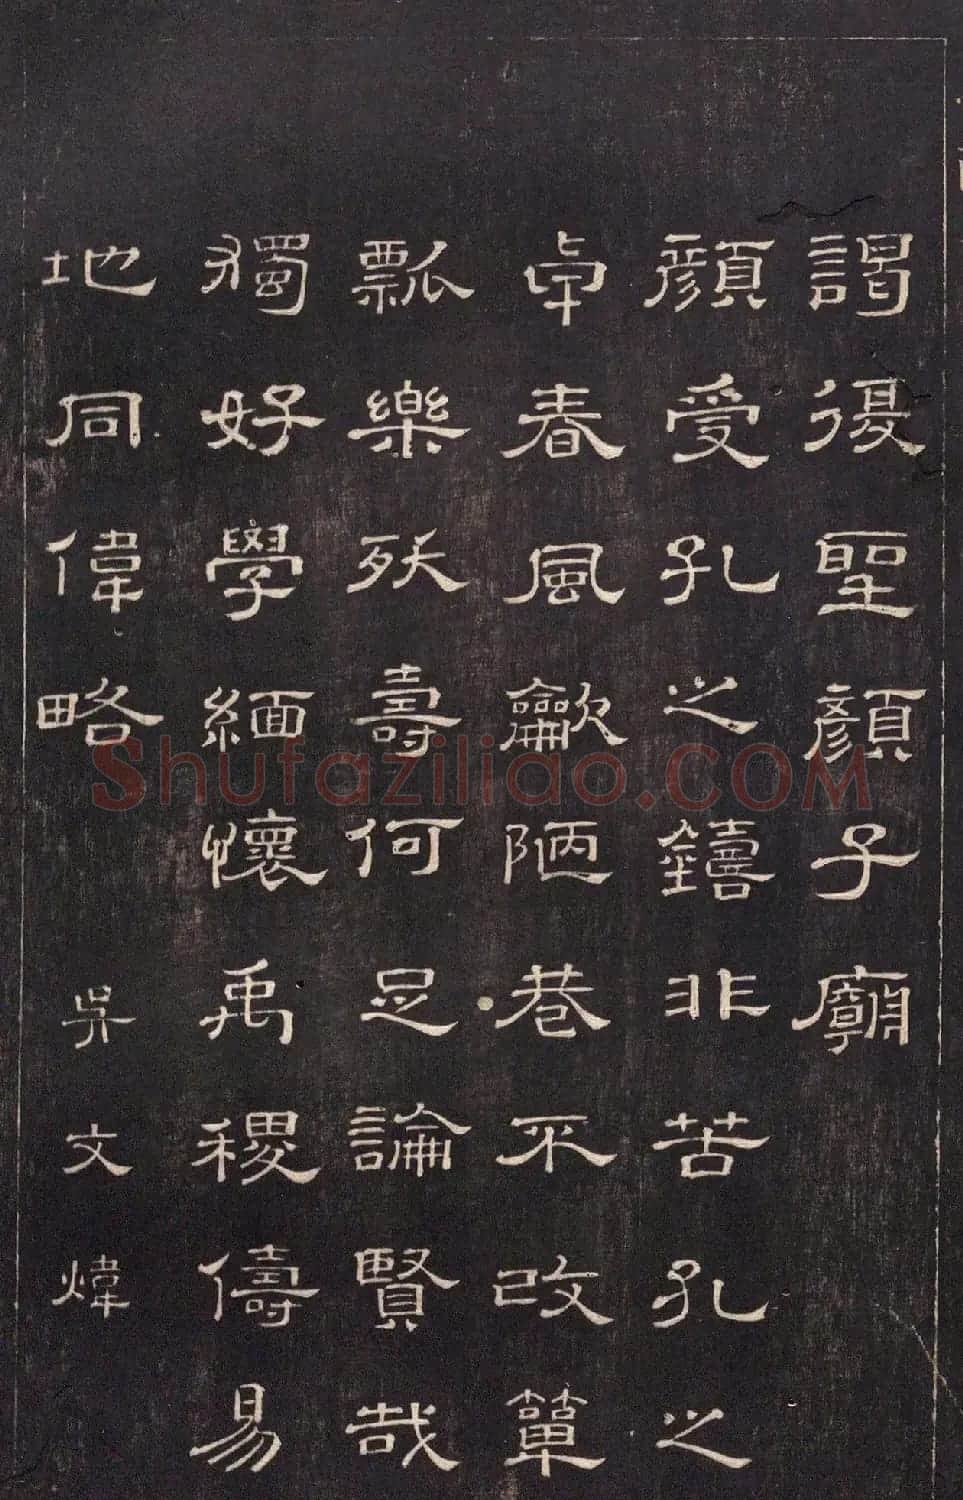 謁復聖顏子廟
顏受孔之鑄非苦孔之
卓春風龡陋巷不改簞
瓢樂殀壽何足論賢哉
獨好學緬懷禹稷儔易
地同偉略 吳文煒
Shufaziliao.COM